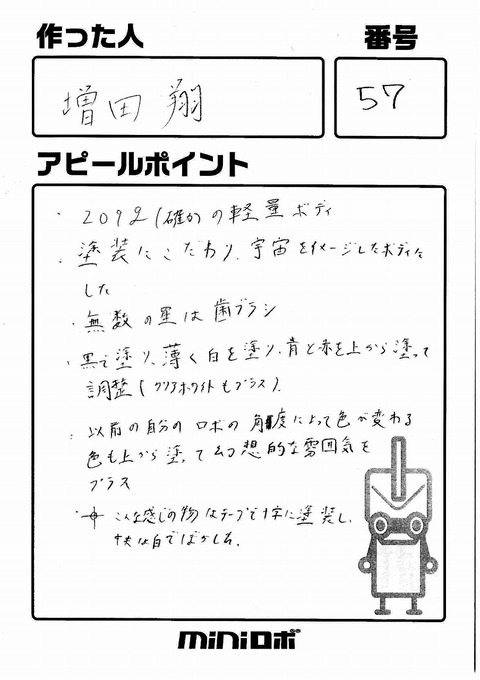 作った人
番号
増田 翔
57
アピールポイント
・209g(確か)の軽量ボディ
・塗装にこだわり、宇宙をイメージしたボディに
した
・無数の星は歯ブラシ
・黒で塗り、薄く白を塗り、青と赤を上から塗って
調整(クリアホワイトもプラス)、
・以前の自分のロボの角度によって色が変わる
色も上から塗って幻想的な雰囲気を
プラス
・こんな感じの物はテープで十字に塗装し、
中央は白でぼかしる。
miniロボ